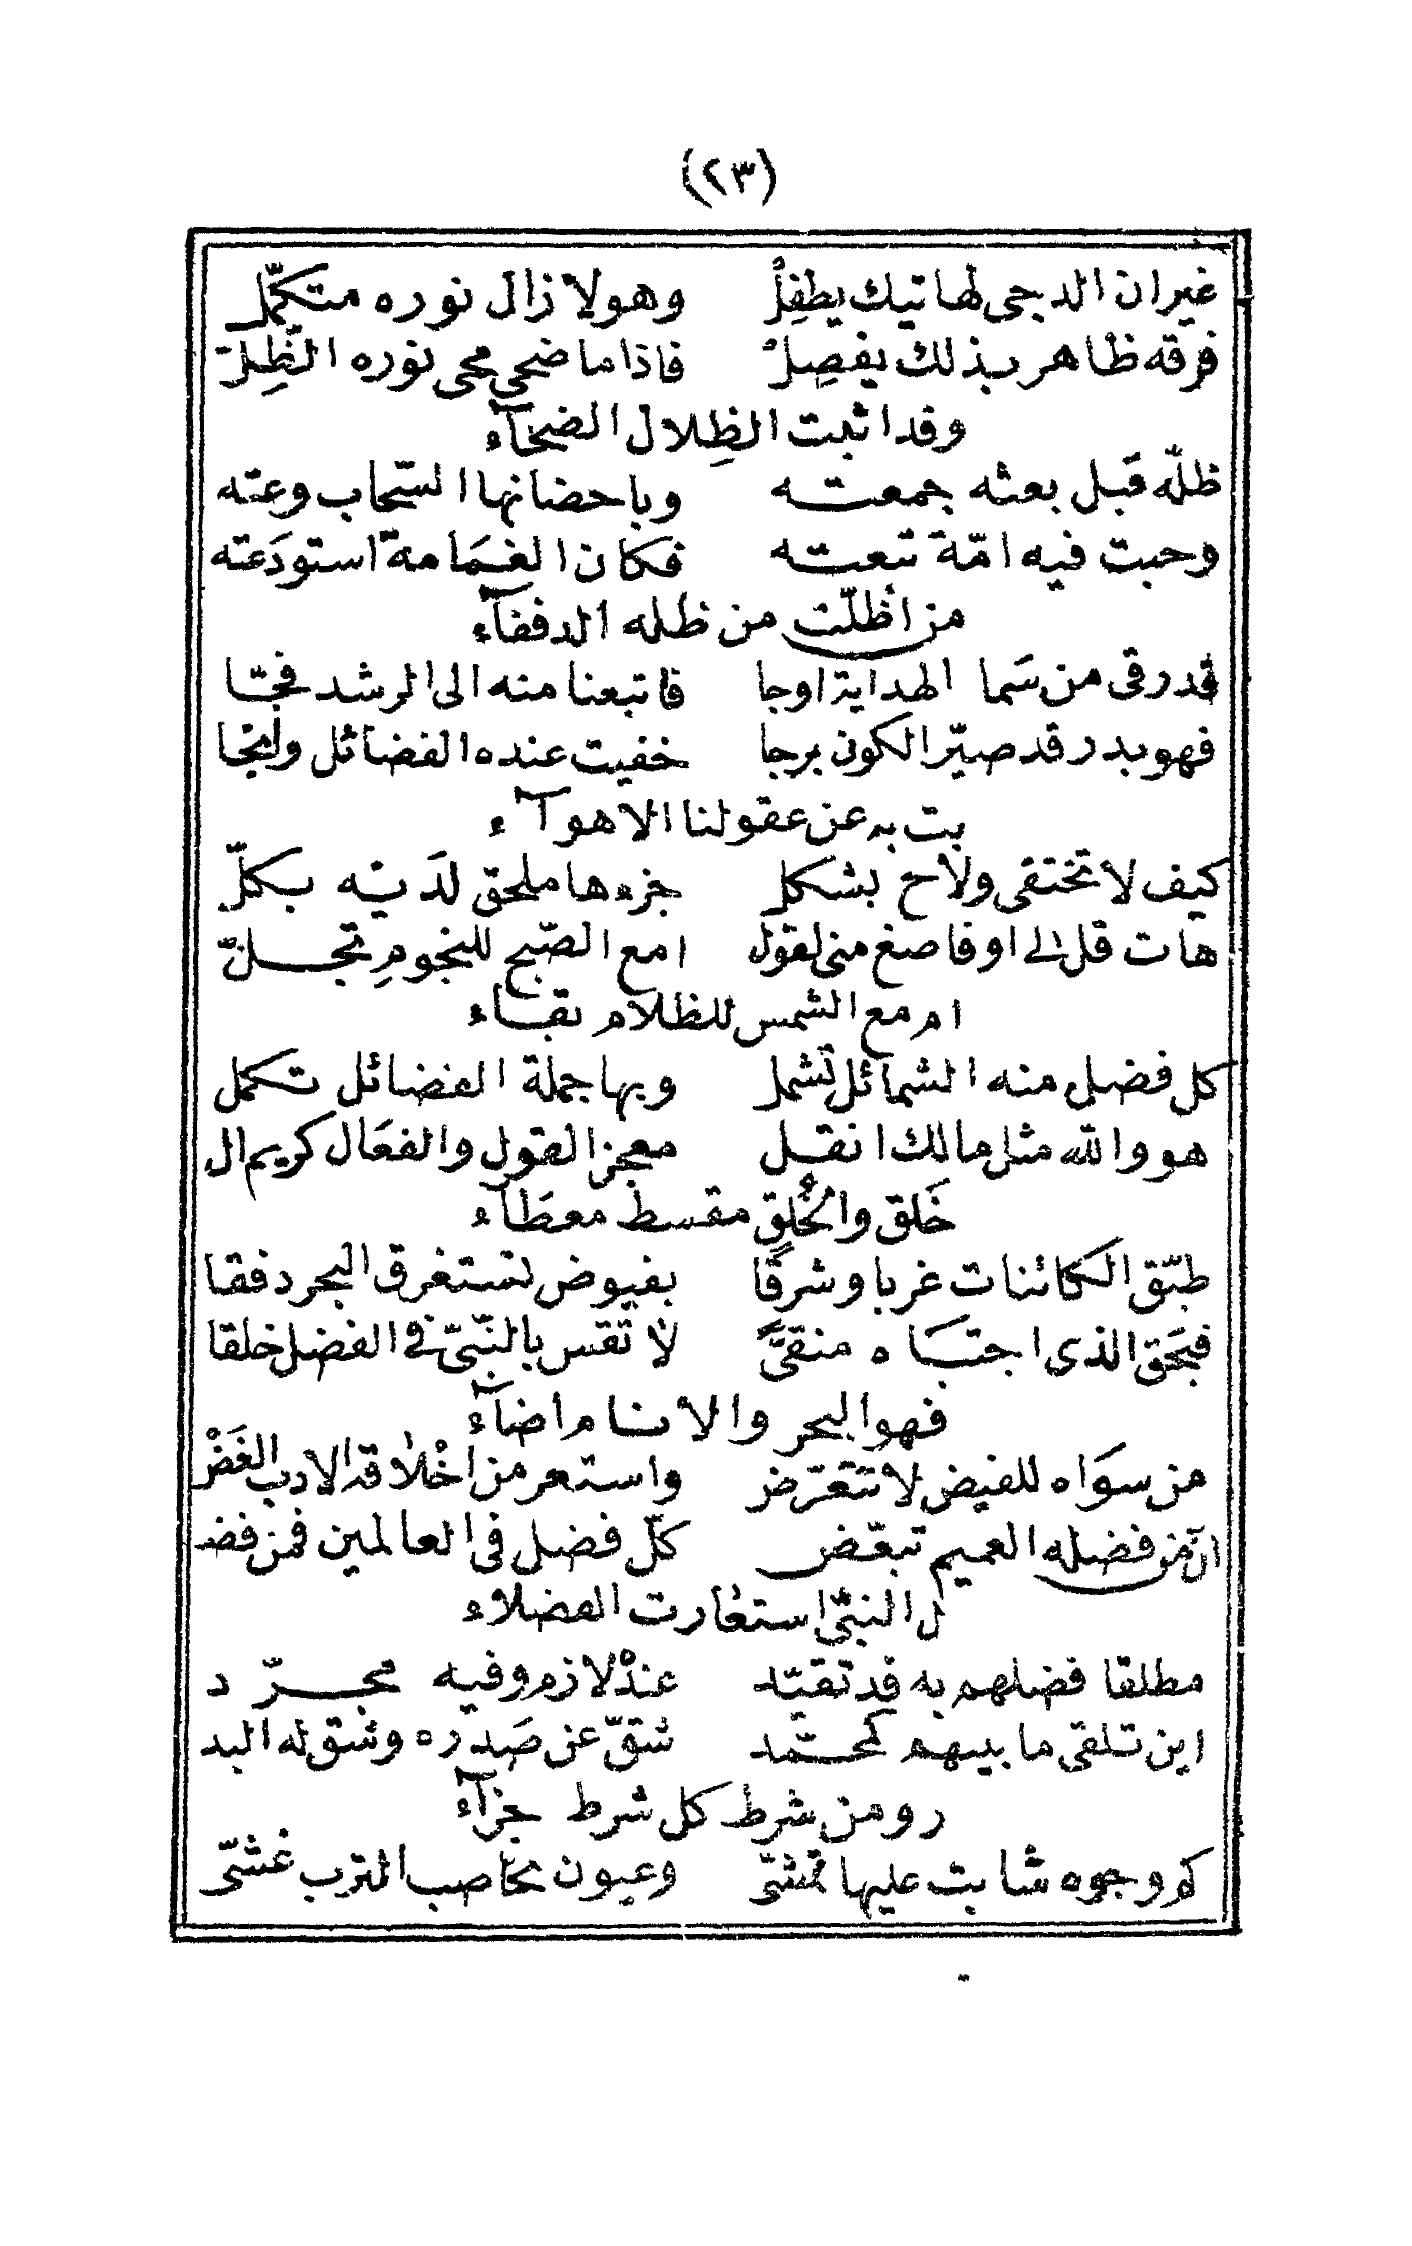 (٢٣)
غيران الدجى لهاتيك يطفِلُ وهولا زال نوره متكمّل
فرقه ظاهر بذلك يفصِلْ فاذا ما ضحى محى نوره الظّلّ
وقد اثبت الظِلال الضحآء
ظلّه قَبل بعثه جمعته وباحضانها السّحاب وعته
وحبت فيه امّة تبعته فكان الغمَامة استودَعته
من اظلّت من ظله الدففآء
قدرقى من سَما الهداية اوجا فاتبعنا منه الى الرشد فجّا
فهو بدر قد صيّر الكون برجا خفيت عنده الفضائل وانجا
بت به عن عقولنا الاهوآء
كيف لا تختفى ولاح بشكل جزءها ملحق لدَيْه بكلّ
هات قل لى او فاصغ منى لقول امع الصّبح للنجومِ تجلّ
ام مع الشمس للظلام بقاء
كل فضل منه الشمائل تشمل وبها جملة الفضائل تكمل
هو والله مثل مالك انقل معجز القول والفعَال كريم ال
خَلق والخُلقِ مقسط معطآء
طبّق الكائنات غربا وشرقًا بفيوض تستغرق البحر دفقا
فبحَق الذى اجتبَاه منقىًّ لا تقس بالنّبىّ فى الفضل خلقا
فهو البحر والانام اضآء
من سوَاه للفيض لا تتعَرّض واستعر من اخْلاقه الادب الغَضْ
انّ من فضله العميم تبعّض كلّ فضل فى العالمين فمن فضـ
ـل النبىّ استعارت الفضلاء
مطلقا فضلهم به قد تقيّد عنذْ لازم وفيه مجرّد
اين تلقى ما بينهم كمحمّد شقّ عن صَدره وشق له البد
ر ومن شرط كل شرط جزآء
كم وجوه شابت عليها تمشّى وعيون بحاصب الترب غشّى